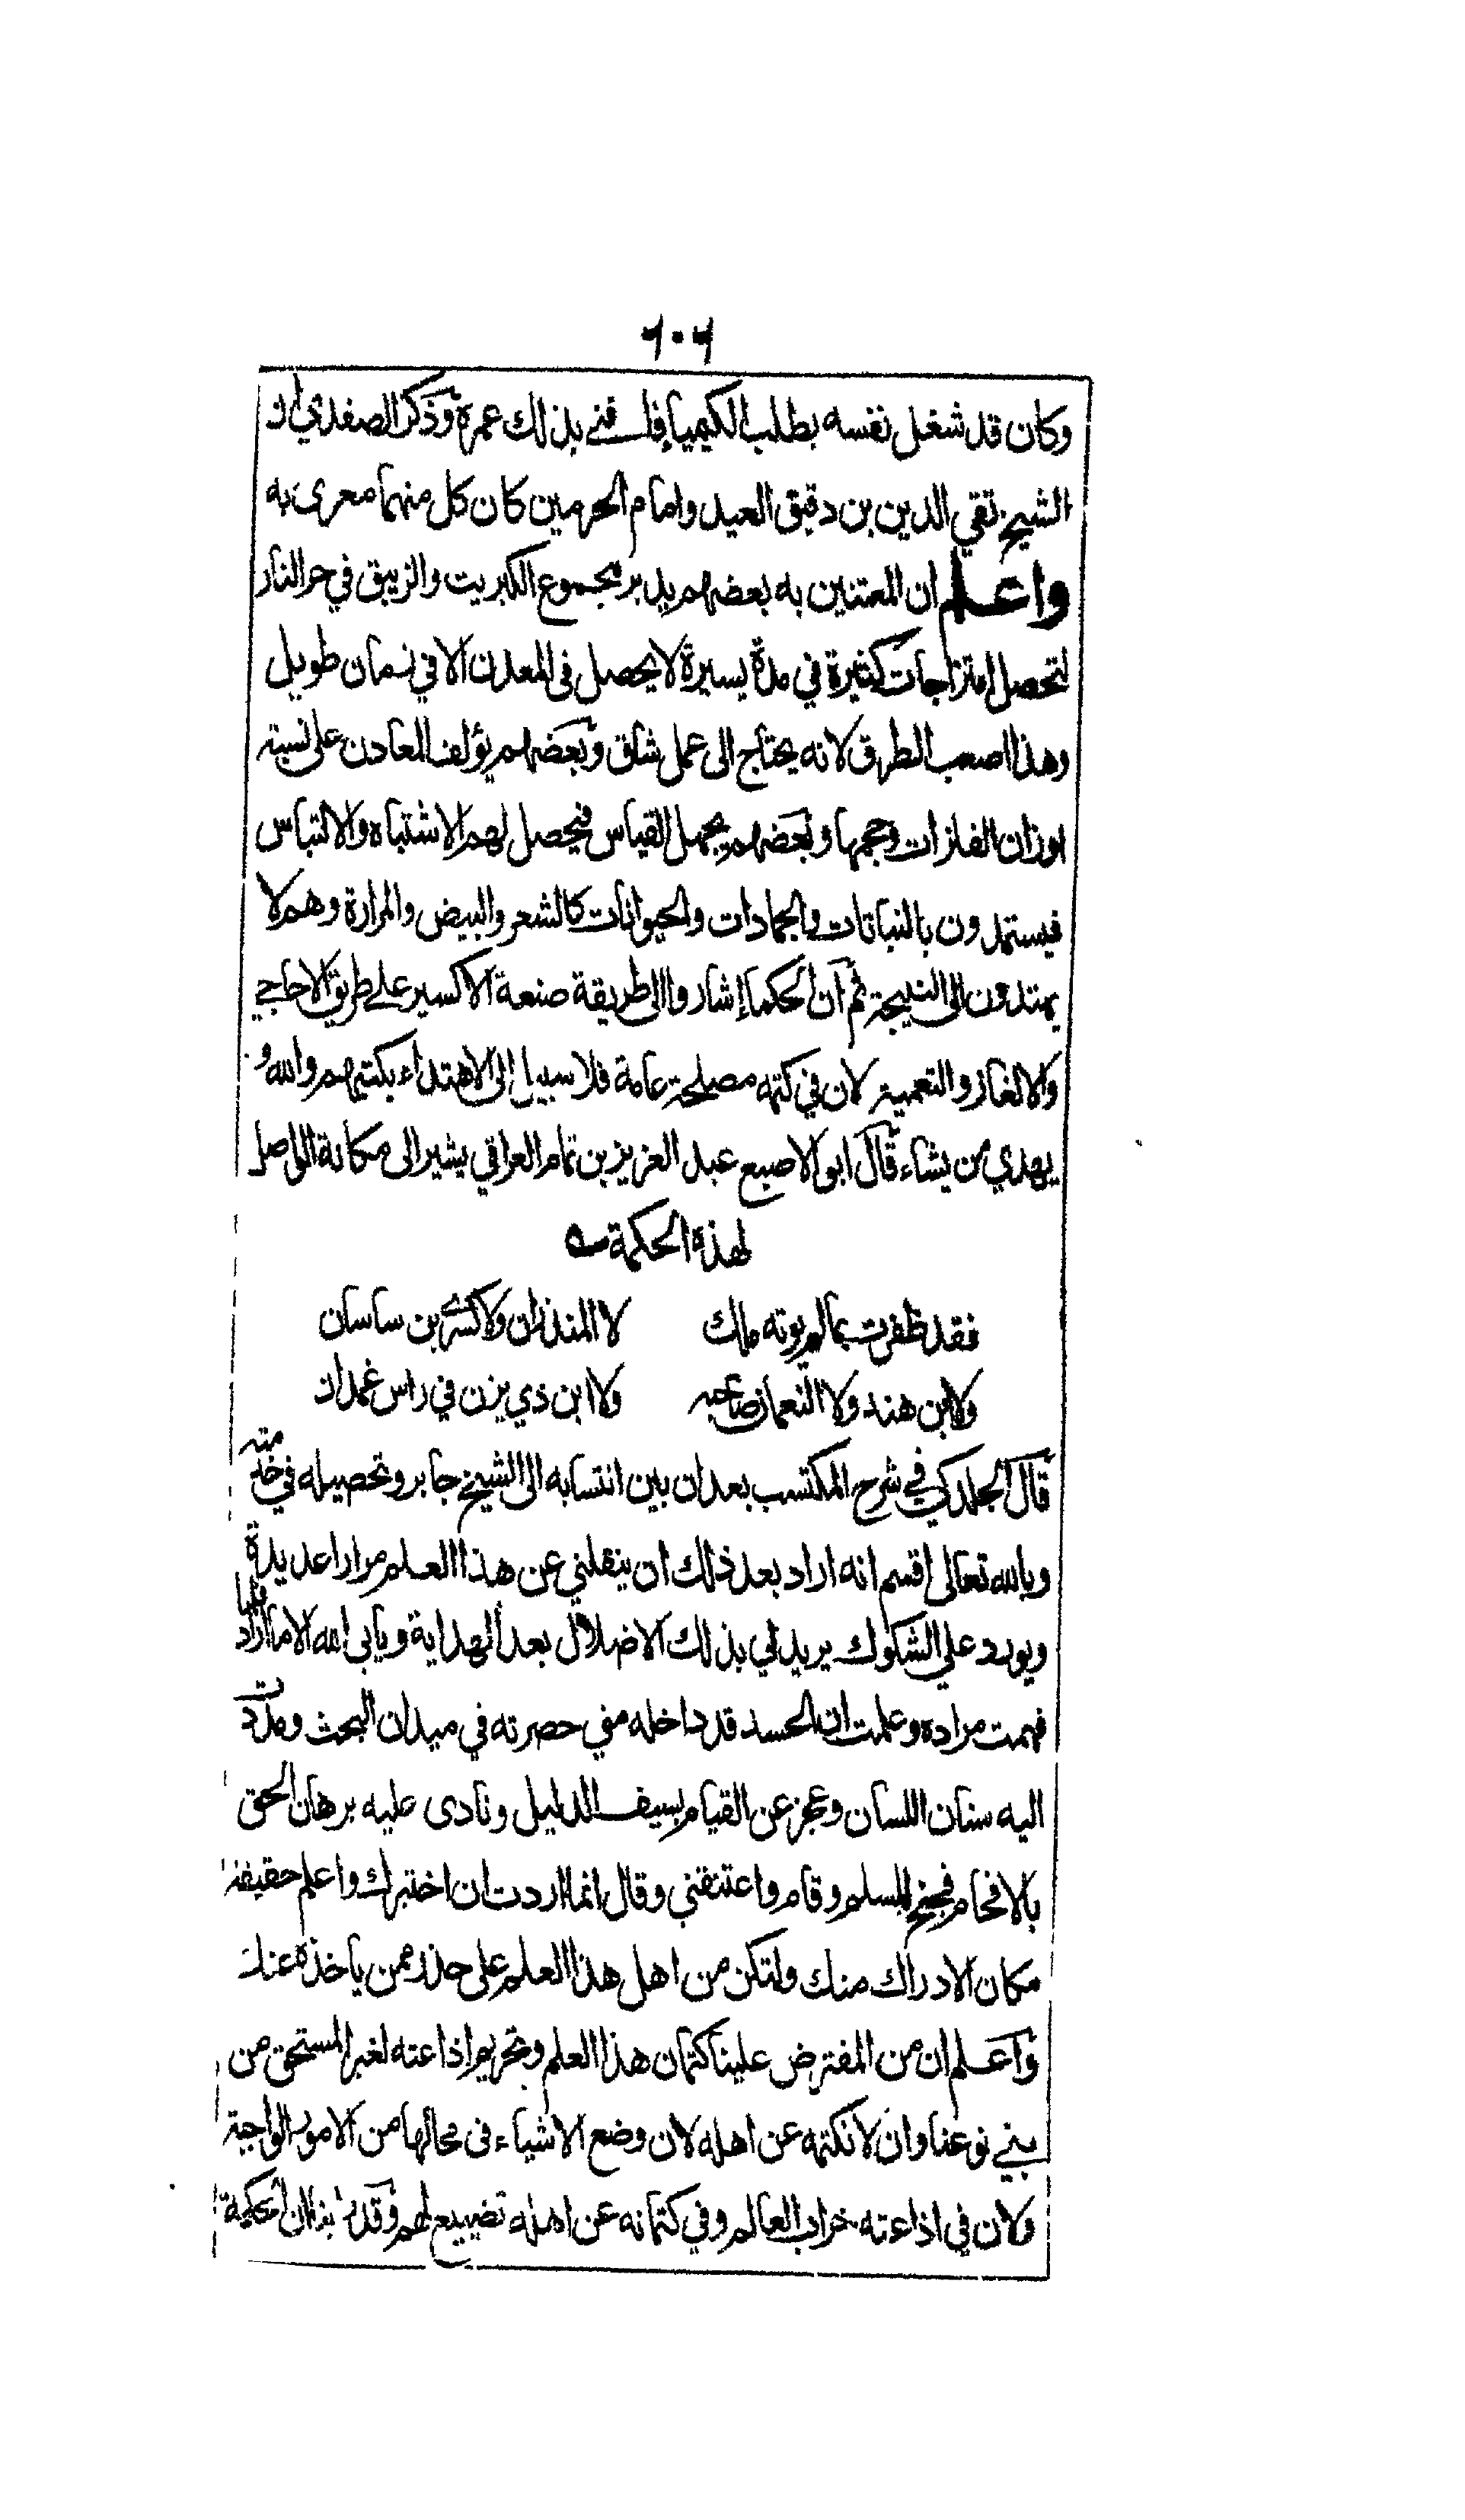 ٦٠٦
وكان قد شغل نفسه بطلب الكيمياء فافنى بذلك عمره وذكر الصفدي ان
الشيخ تقي الدين بن دقيق العيد وامام الحرمين كان كل منهما مغرى به
واعلم ان المعتنين به بعضهم يدبر مجموع الكبريت والزيبق في حر النار
لتحصل امتزاجات كثيرة في مدة يسيرة لا يحصل فى المعدن الا في زمان طويل
وهذا اصعب الطرق لانه يحتاج الى عمل شاق وبعضهم يؤلف المعادن على نسبة
اوزان الفلزات وحجمها وبعضهم يجهل القياس فيحصل لهم الاشتباه والالتباس
فيستمدون بالنباتات والجمادات والحيوانات كالشعر والبيض والمرارة وهم لا
يهتدون الى النتيجة ثم ان الحكماء اشاروا الى طريقة صنعة الاكسير على طريق الاحاجي
والالغاز والتعمية لان في كتمه مصلحة عامة فلا سبيل الى الاهتداء بكتبهم والله
يهدي من يشاء قال ابو الاصبع عبد العزيز بن تمام العراقي يشير الى مكانة الواصل
لهذه الحكمة
فقد ظفرت بمالم يوته ملك لا المنذران ولا كسرى بن ساسان
ولا ابن هند ولا النعمان صاحبه ولا ابن ذي يزن في راس غمدان
قال الجلدكي في شرح المكتسب بعد ان بين انتسابه الى الشيخ جابر وتحصيله في خدمته
وبالله تعالى اقسم انه اراد بعد ذلك ان ينقلني عن هذا العلم مرارا عديدة
ويورد علي الشكوك يريد لي بذلك الاضلال بعد الهداية ويابى الله الا ما اراد فلما
فهمت مراده وعلمت ان الحسد قد داخله مني حصرته في ميدان البحث ومددت
اليه سنان اللسان وعجز عن القيام بسيف الدليل ونادى عليه برهان الحق
بالافحام فجنح للسلم وقام واعتنقني وقال انما اردت ان اختبرك واعلم حقيقة
مكان الادراك منك ولتكن من اهل هذا العلم على حذر ممن ياخذه عنك
واعلم ان من المفترض علينا كتمان هذا العلم وتحريم اذاعته لغير المستحق من
بني نوعنا وان لا نكتمه عن اهله لان وضع الاشياء فى محالها من الامور الواجبة
ولان في اذاعته خراب العالم وفي كتمانه عن اهله تضييع لهم وقد راينا ان الحكمة